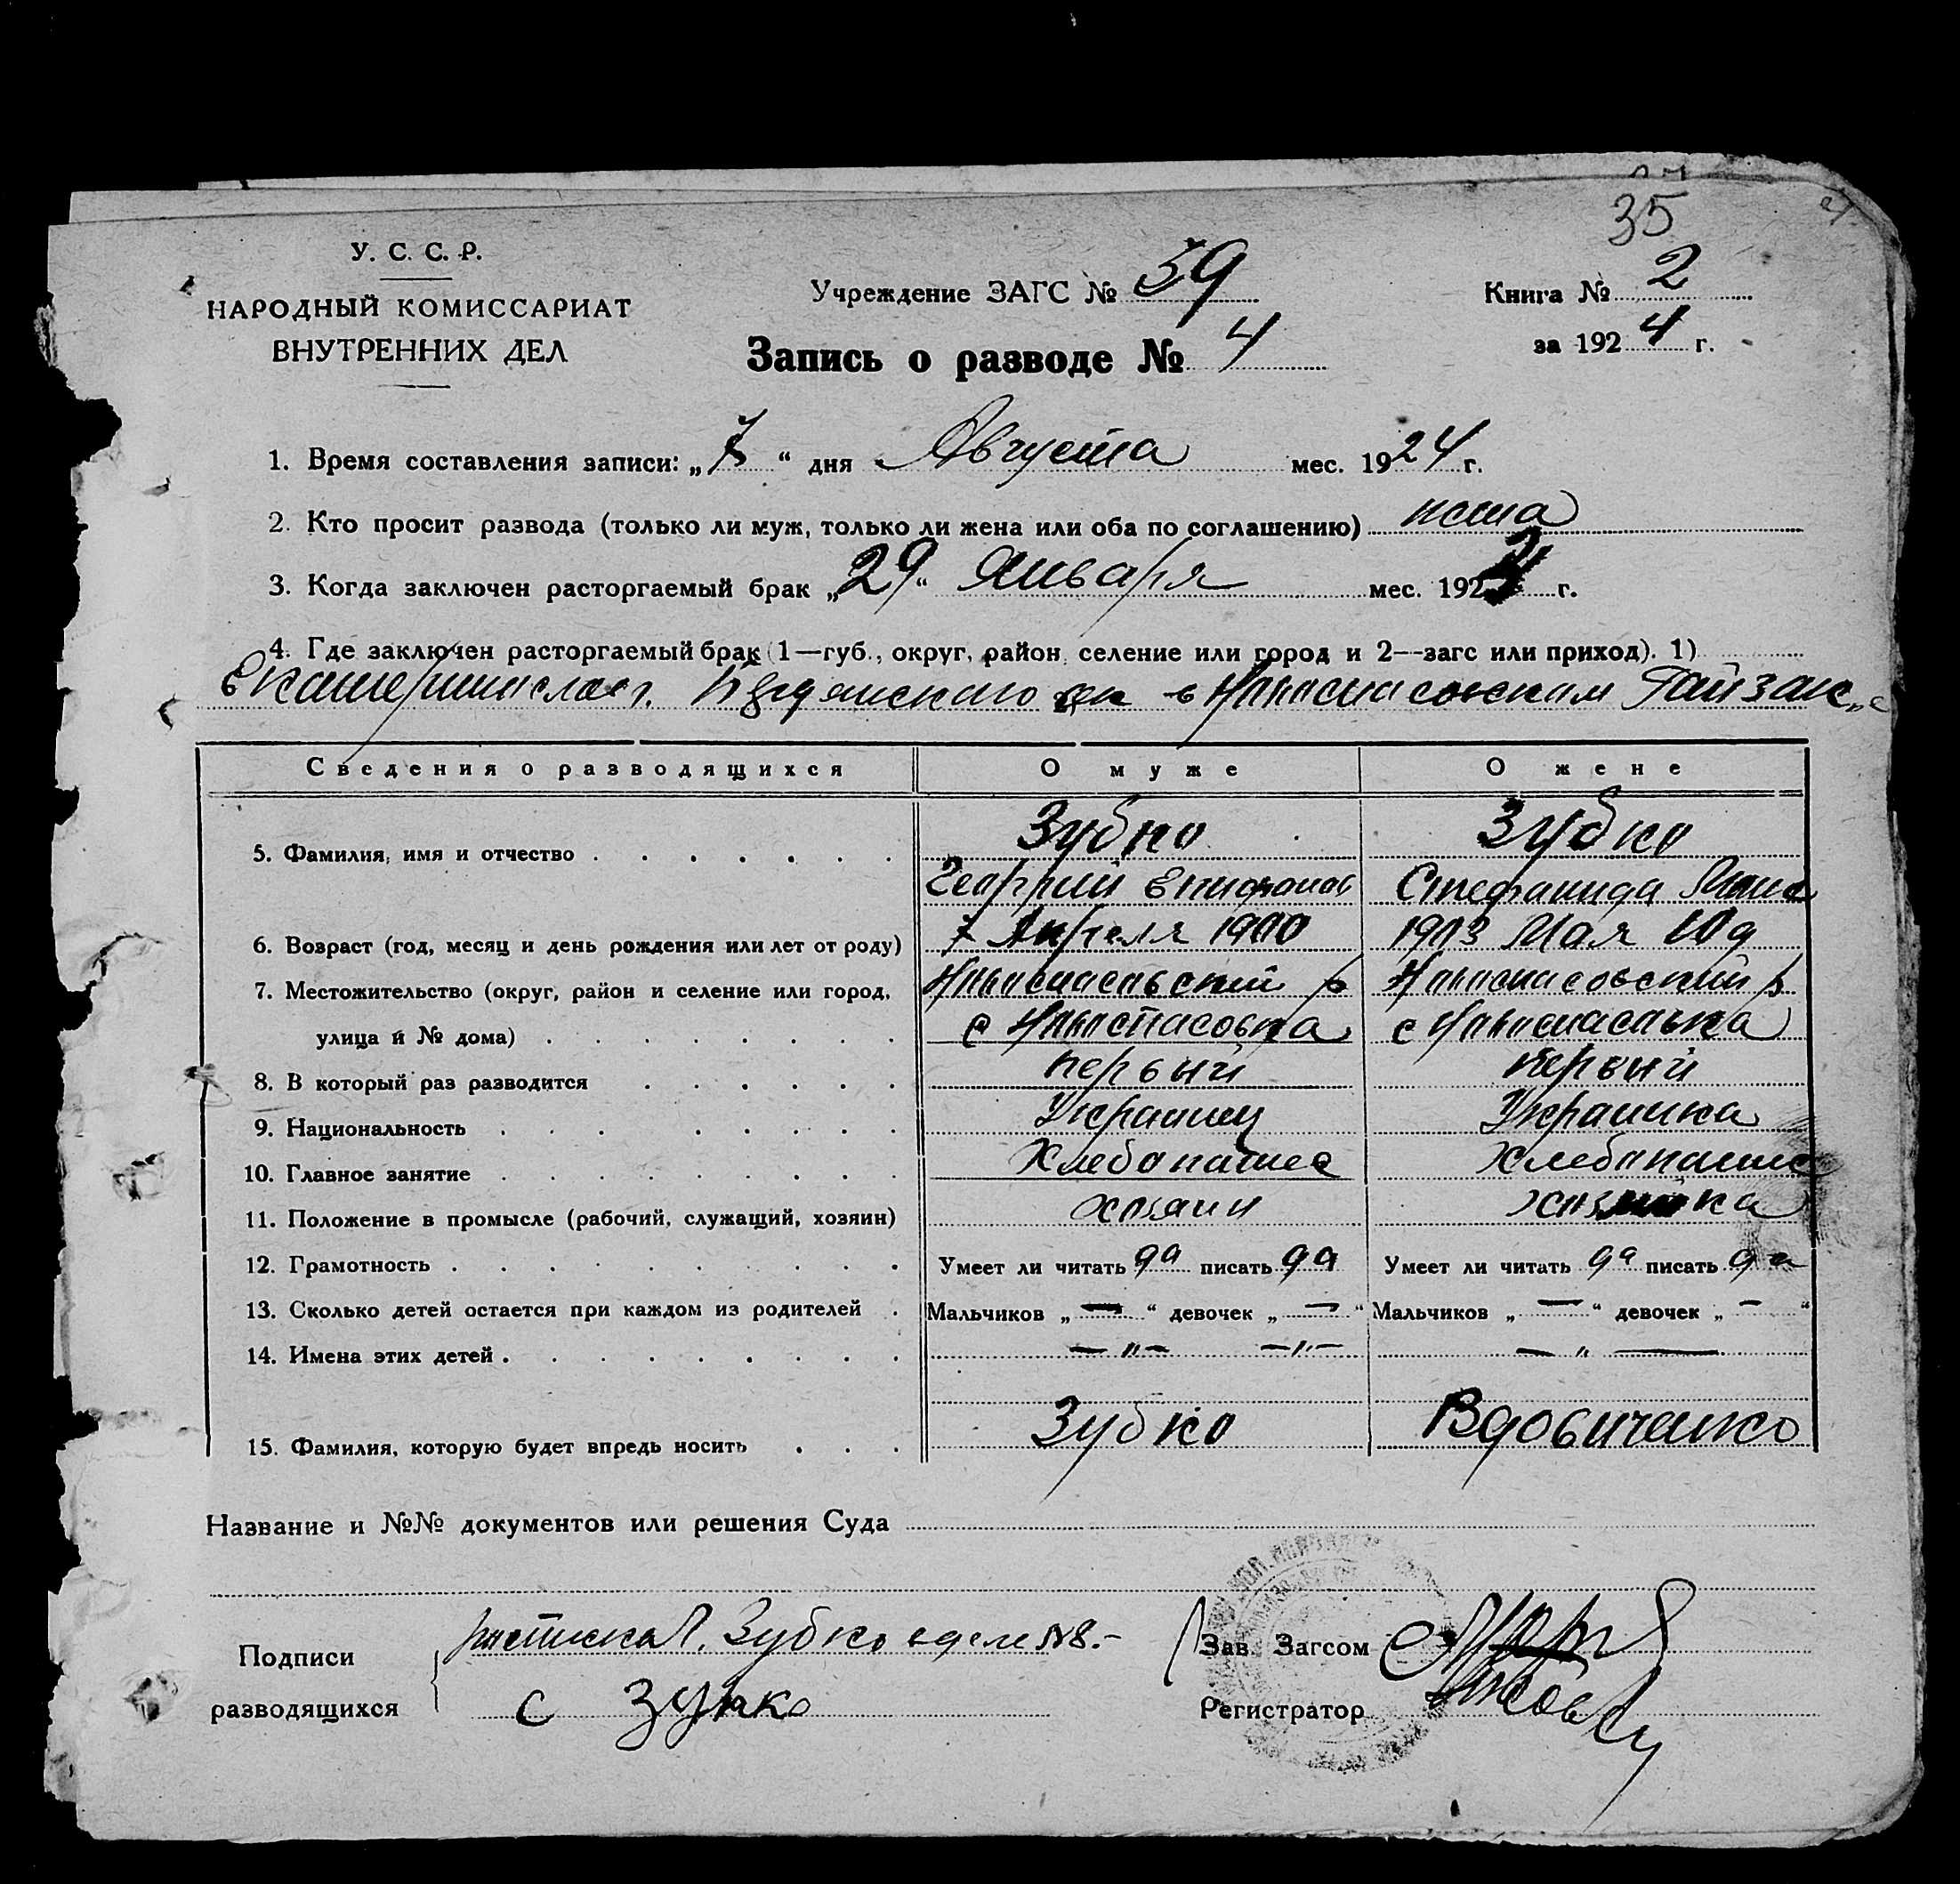 35
У. С. С. Р.
НАРОДНЫЙ КОМИССАРИАТ
ВНУТРЕННИХ ДЕЛ
Учреждение ЗАГС № 59
Запись о разводе № 4
Книга № 2
за 1924 г.
1. Время составления записи: „7“ дня Августа мес. 1924 г.
2. Кто просит развода (только ли муж, только ли жена или оба по соглашению)
3. Когда заключен расторгаемый брак „29“ Января мес. 192 г.
4. Где заключен расторгаемый брак (1—губ., округ, район, селение или город и 2—загс или приход). 1)
Сведения о разводящихся О муже О жене
5. Фамилия, имя и отчество Зубко Зубко
Георгий Епифанов Стефанида
6. Возраст (год, месяц и день рождения или лет от роду) 7 Апреля 1900 1903 Мая 10д
7. Местожительство (округ, район и селение или город, Новоспасовский р Новоспасовский р
улица и № дома) с Новоспасовка с Новоспасовка
8. В который раз разводится первый первый
9. Национальность Украинец Украинка
10. Главное занятие Хлебопашес Хлебопашес
11. Положение в промысле (рабочий, служащий, хозяин) хозяин хозяйка
12. Грамотность Умеет ли читать да писать да Умеет ли читать да писать да
13. Сколько детей остается при каждом из родителей Мальчиков „—“ девочек „—“ Мальчиков „—“ девочек „—“
14. Имена этих детей — „ — — „ — — „ —
15. Фамилия, которую будет впредь носить Зубко Вдовиченко
Название и №№ документов или решения Суда
Подписи разводящихся
Зубко в деле №8.-
С Зубко
Зав. Загсом
Регистратор